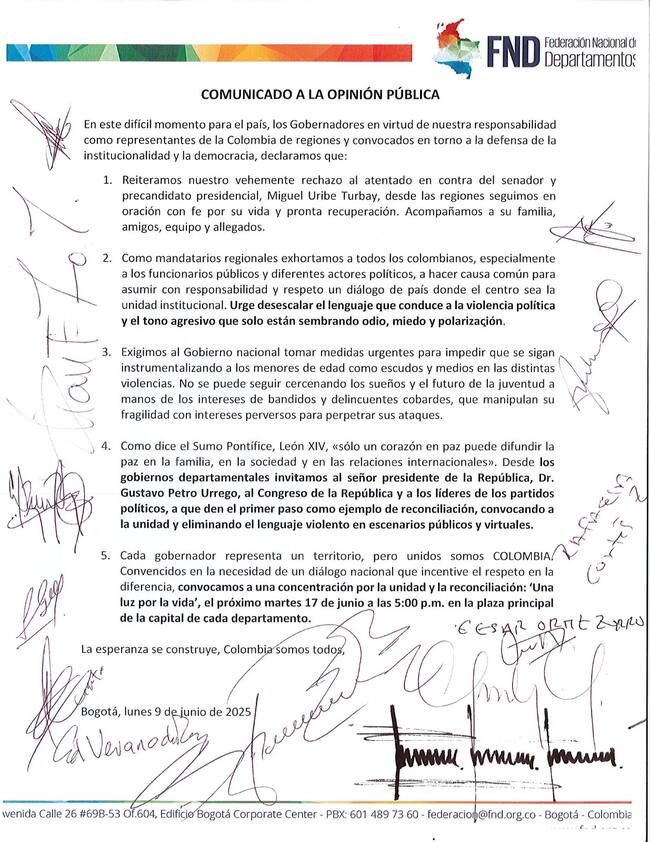 FND Federación Nacional de
Departamentos
COMUNICADO A LA OPINIÓN PÚBLICA
En este difícil momento para el país, los Gobernadores en virtud de nuestra responsabilidad
como representantes de la Colombia de regiones y convocados en torno a la defensa de la
institucionalidad y la democracia, declaramos que:
1. Reiteramos nuestro vehemente rechazo al atentado en contra del senador y
precandidato presidencial, Miguel Uribe Turbay, desde las regiones seguimos en
oración con fe por su vida y pronta recuperación. Acompañamos a su familia,
amigos, equipo y allegados.
2. Como mandatarios regionales exhortamos a todos los colombianos, especialmente
a los funcionarios públicos y diferentes actores políticos, a hacer causa común para
asumir con responsabilidad y respeto un diálogo de país donde el centro sea la
unidad institucional. Urge desescalar el lenguaje que conduce a la violencia política
y el tono agresivo que solo están sembrando odio, miedo y polarización.
3. Exigimos al Gobierno nacional tomar medidas urgentes para impedir que se sigan
instrumentalizando a los menores de edad como escudos y medios en las distintas
violencias. No se puede seguir cercenando los sueños y el futuro de la juventud a
manos de los intereses de bandidos y delincuentes cobardes, que manipulan su
fragilidad con intereses perversos para perpetrar sus ataques.
4. Como dice el Sumo Pontífice, León XIV, «sólo un corazón en paz puede difundir la
paz en la familia, en la sociedad y en las relaciones internacionales». Desde los
gobiernos departamentales invitamos al señor presidente de la República, Dr.
Gustavo Petro Urrego, al Congreso de la República y a los líderes de los partidos
políticos, a que den el primer paso como ejemplo de reconciliación, convocando a
la unidad y eliminando el lenguaje violento en escenarios públicos y virtuales.
5. Cada gobernador representa un territorio, pero unidos somos COLOMBIA.
Convencidos en la necesidad de un diálogo nacional que incentive el respeto en la
diferencia, convocamos a una concentración por la unidad y la reconciliación: 'Una
luz por la vida', el próximo martes 17 de junio a las 5:00 p.m. en la plaza principal
de la capital de cada departamento.
CESAR ORTIZ ZORRO
La esperanza se construye, Colombia somos todos,
Bogotá, lunes 9 de junio de 2025
venida Calle 26 #69B-53 Of.604, Edificio Bogotá Corporate Center - PBX: 601 489 73 60 - federacion@fnd.org.co - Bogotá - Colombia